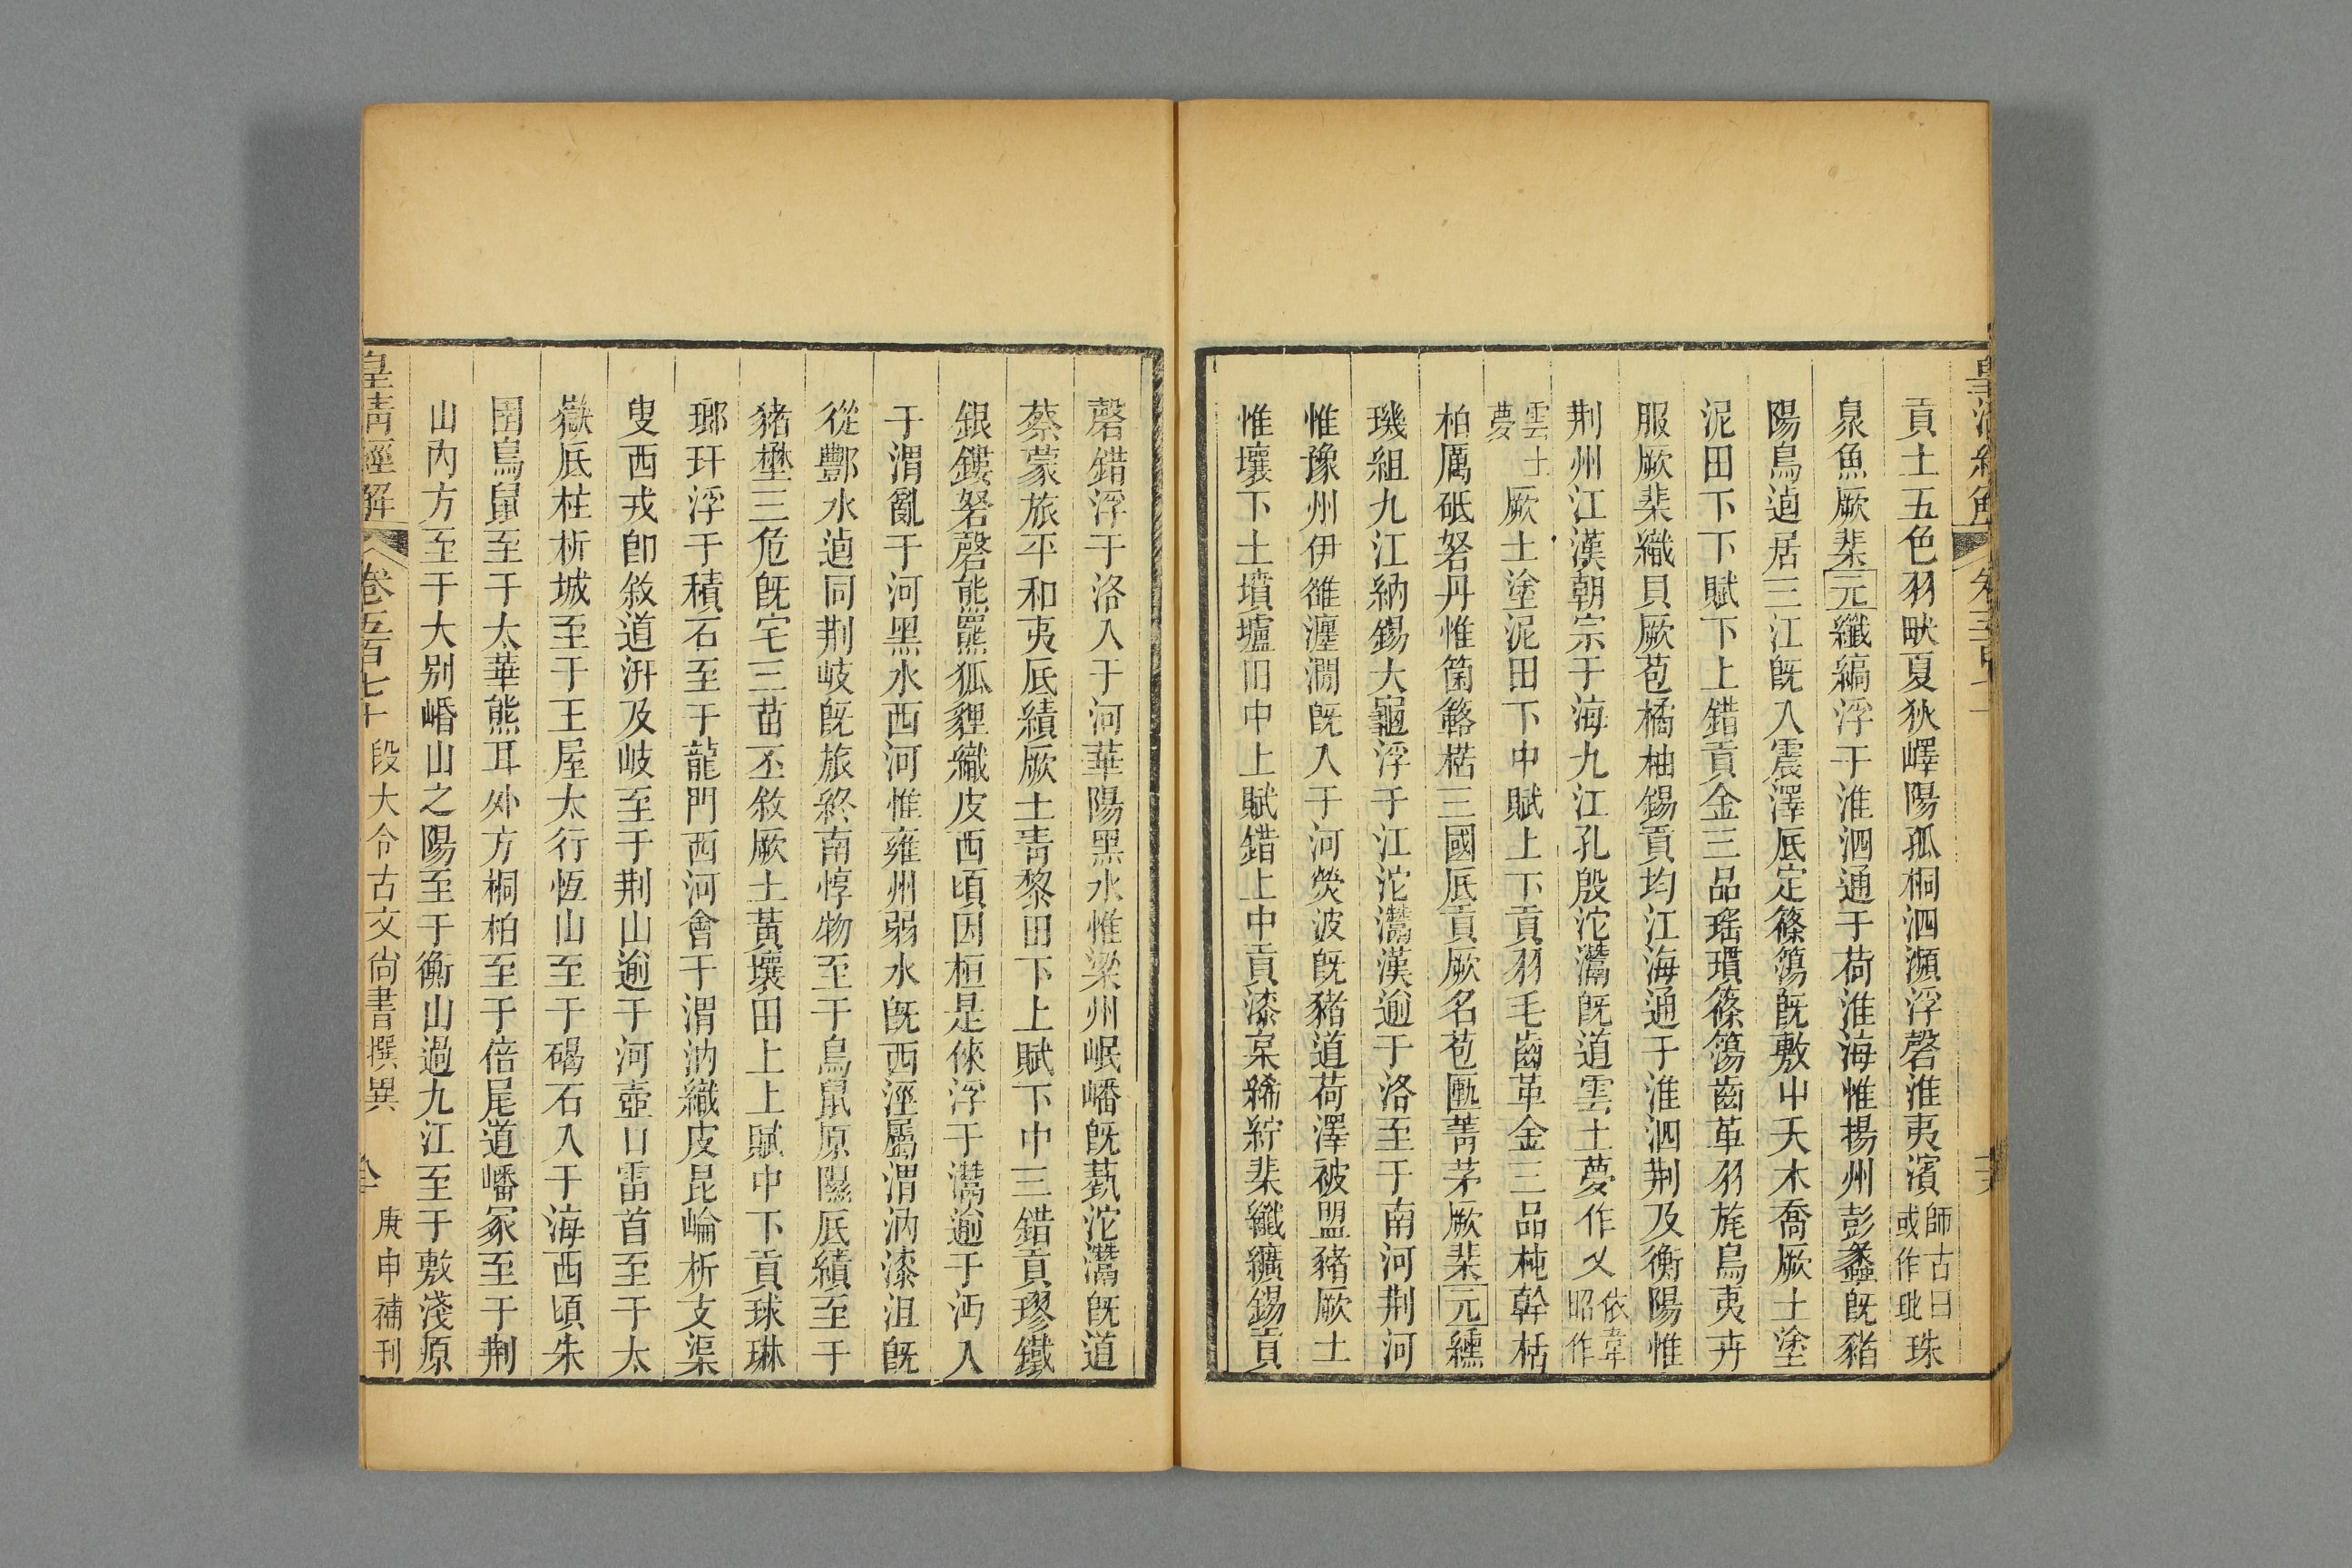 貢土五色羽畎夏狄嶧陽孤桐泗瀕浮磬淮夷濱師古曰或作玭珠
泉魚厥棐元纖縞浮于淮泗通于荷淮海惟揚州彭蠡既豬
陽鳥逌居三江既入震澤厎定篠簜既敷屮夭木喬厥土塗
泥田下下賦下上錯貢金三品瑤瑻篠簜齒革羽旄鳥夷卉
服厥棐織貝厥苞橘柚錫貢均江海通于淮泗荆及衡陽惟
荆州江漢朝宗于海九江孔殷沱灊既道雲土夢作乂依韋昭作
雲土夢厥土塗泥田下中賦上下貢羽毛齒革金三品杶幹栝
柏厲砥砮丹惟箘簵楛三國厎貢厥名苞匭菁茅厥棐元纁
璣組九江納錫大龜浮于江沱灊漢逾于洛至于南河荆河
惟豫州伊雒瀍澗既入于河熒波既豬道荷澤被盟豬厥土
惟壤下土墳壚田中上賦錯上中貢漆枲絺紵棐纖纊錫貢
磬錯浮于洛入于河華陽黑水惟梁州岷嶓既蓺沱灊既道
蔡蒙旅平和夷厎績厥土青黎田下上賦下中三錯貢璆鐵
銀鏤砮磬熊羆狐貍織皮西頃因桓是倈浮于灊逾于沔入
于渭亂于河黑水西河惟雍州弱水既西涇屬渭汭漆沮既
從酆水逌同荆岐既旅終南惇物至于鳥鼠原隰厎績至于
豬壄三危既宅三苗丕敘厥土黃壤田上上賦中下貢球琳
瑯玕浮于積石至于龍門西河會于渭汭織皮昆崘析支渠
叟西戎卽敘道汧及岐至于荆山逾于河壺口雷首至于太
嶽厎柱析城至于王屋太行恆山至于碣石入于海西頃朱
圉鳥鼠至于太華熊耳外方桐柏至于倍尾道嶓冢至于荆
山內方至于大别㟭山之陽至于衡山過九江至于敷淺原
皇清經解 卷五百七十 段大令古文尚書撰異 庚申補刊